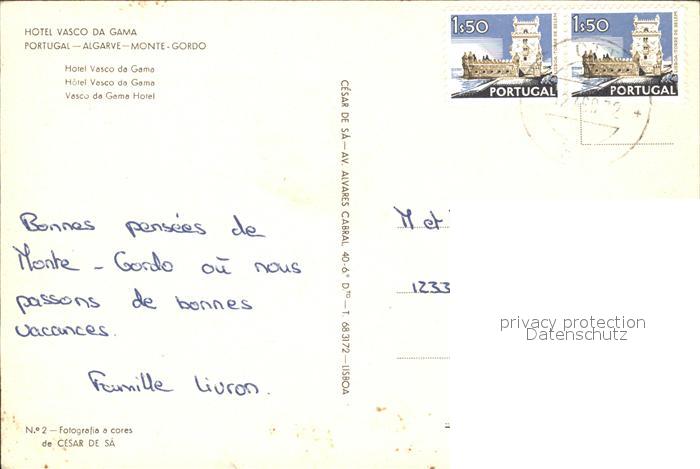 HOTEL VASCO DA GAMA
PORTUGAL — ALGARVE — MONTE-GORDO
Hotel Vasco da Gama
Hôtel Vasco da Gama
Vasco da Gama Hotel
Bonnes pensées de
Monte - Gordo où nous
passons de bonnes
vacances.
Famille Livron.
N.º 2 — Fotografia a cores
de CÉSAR DE SÁ
CÉSAR DE SÁ — AV. ALVARES CABRAL, 40-6° DTO — T. 683172 — LISBOA
1$50
LISBOA · TORRE DE BELÉM
PORTUGAL
1$50
LISBOA · TORRE DE BELÉM
PORTUGAL
M et
1233
privacy protection
Datenschutz